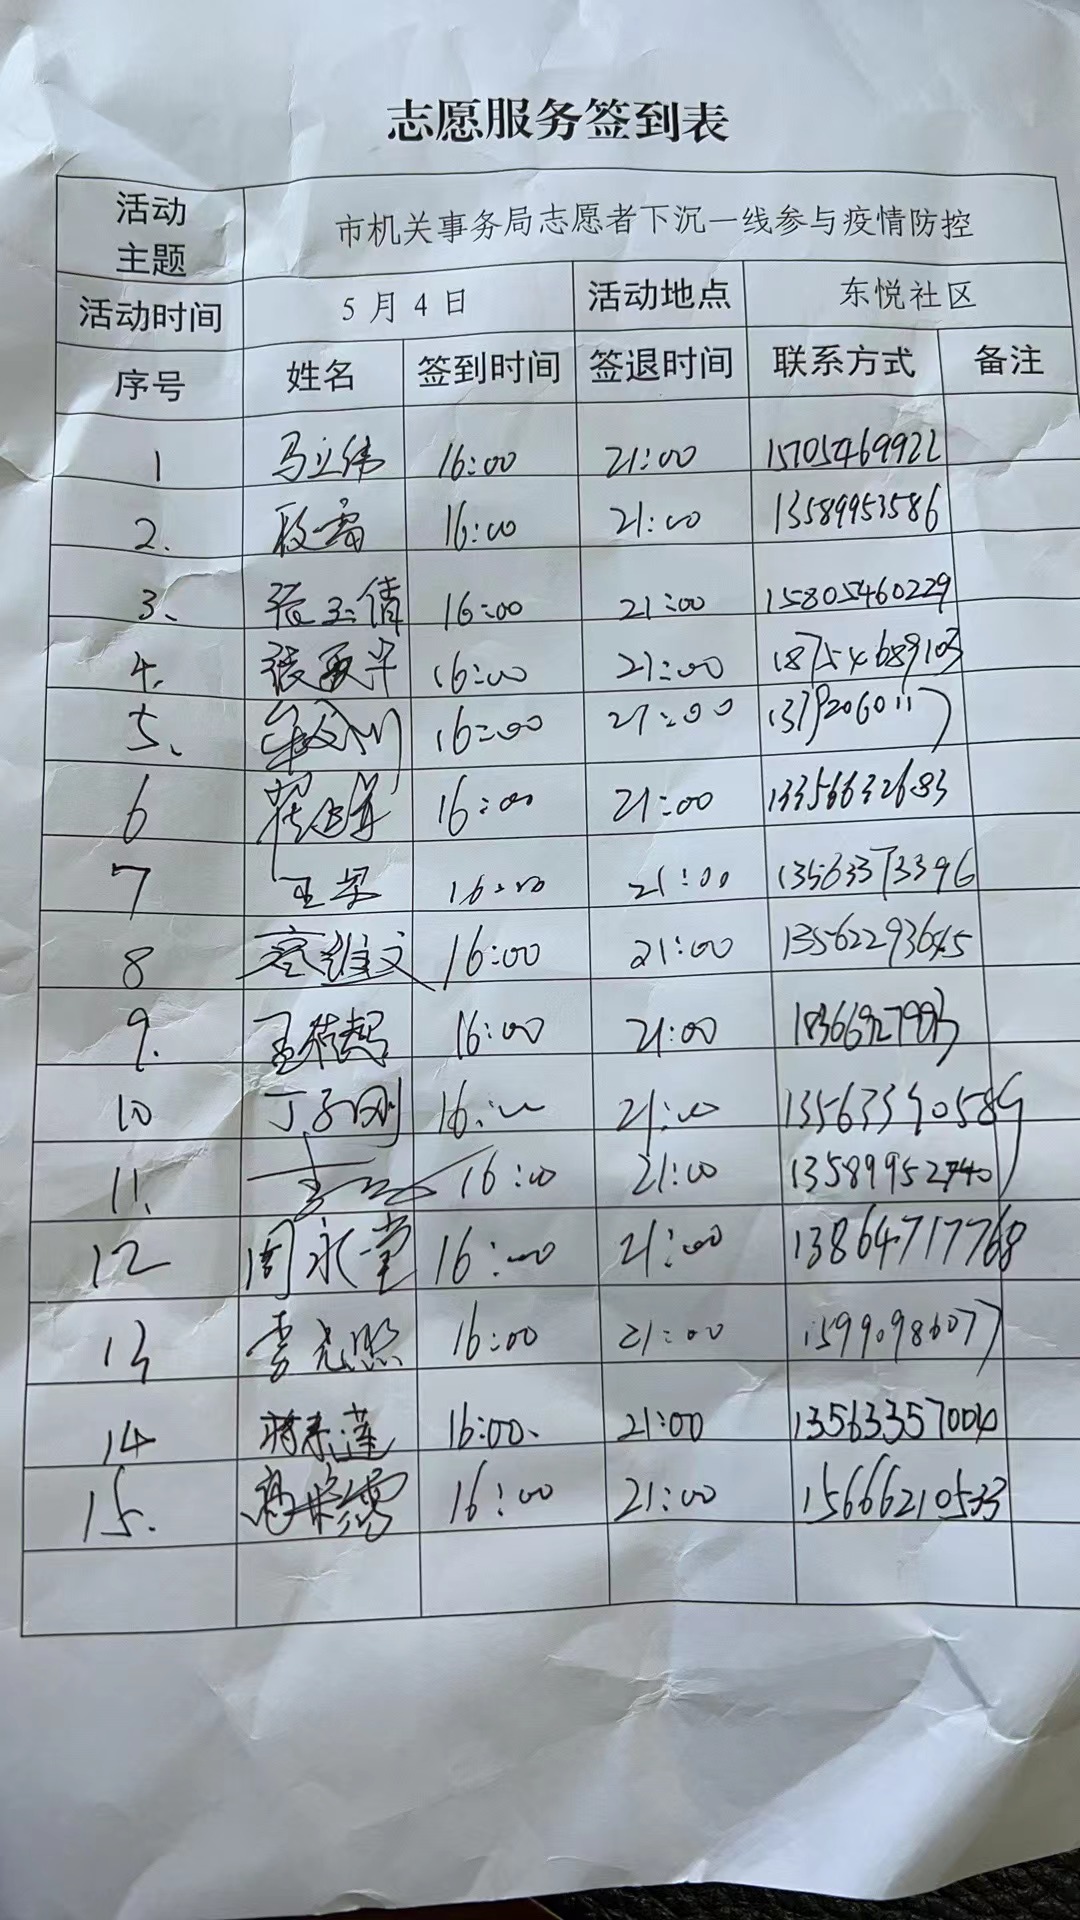 志愿服务签到表
活动主题 市机关事务局志愿者下沉一线参与疫情防控
活动时间 5月4日 活动地点 东悦社区
序号 姓名 签到时间 签退时间 联系方式 备注
1 马立伟 16:00 21:00 15705469922
2. 段雷 16:00 21:00 13589953586
3、 张玉倩 16:00 21:00 15805460229
4. 16:00 21:00 18754689103
5、 16:00 21:00 13792060117
6 16:00 21:00 13356632683
7 王昂 16:00 21:00 13563373396
8 16:00 21:00 13562293645
9. 16:00 21:00 18366927993
10 丁子刚 16:00 21:00 13563390589
11. 16:00 21:00 13589952740
12 周永堂 16:00 21:00 13864717768
13 李光照 16:00 21:00 15990986077
14 16:00、 21:00 13563357004
15. 16:00 21:00 15666210533